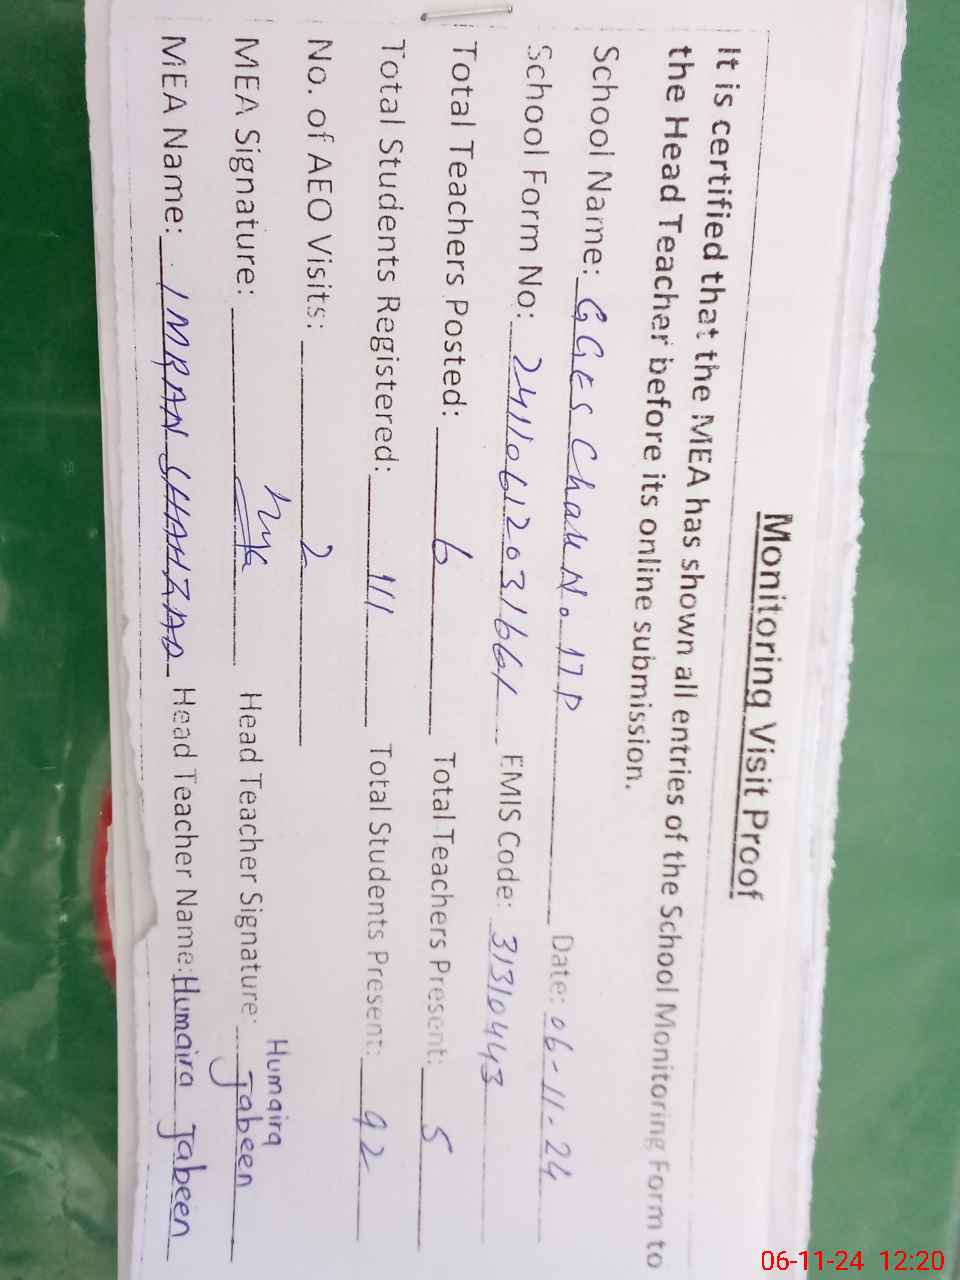 Monitoring Visit Proof
It is certified that the MEA has shown all entries of the School Monitoring Form to
the Head Teacher before its online submission.
School Name: GGES Chak No. 17P Date: 06-11-24
School Form No: 24110612031661 EMIS Code: 31310443
Total Teachers Posted: 6 Total Teachers Present: 5
Total Students Registered: 111 Total Students Present: 92
No. of AEO Visits: 2
MEA Signature: Head Teacher Signature: Humaira Jabeen
MEA Name: IMRAN SHAHZAD Head Teacher Name: Humaira Jabeen
06-11-24 12:20